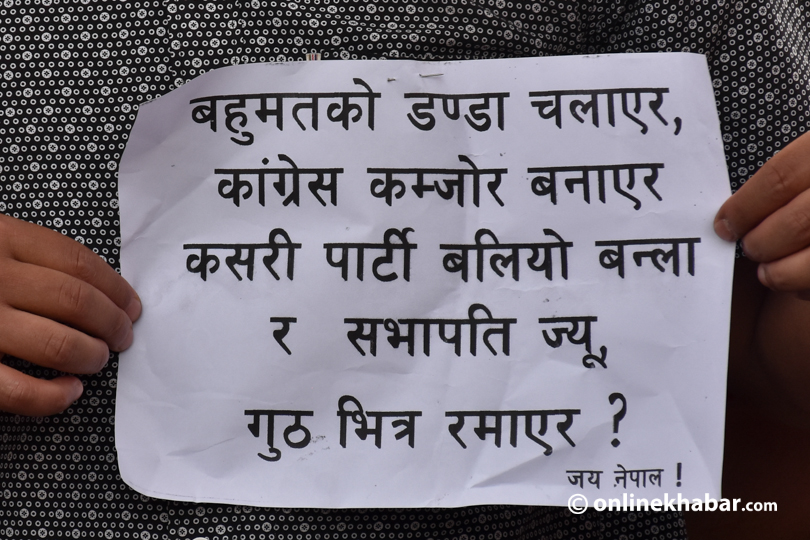 बहुमतको डण्डा चलाएर,
कांग्रेस कम्जोर बनाएर
कसरी पार्टी बलियो बन्ला
र सभापति ज्यू,
गुठ भित्र रमाएर ?
जय नेपाल !
© onlinekhabar.com